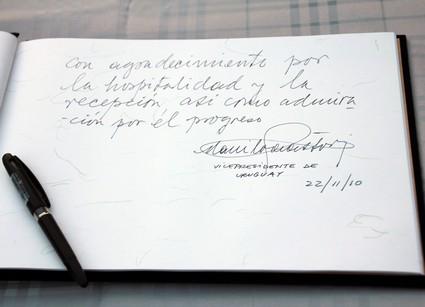 con agradecimiento por
la hospitalidad y la
recepción, así como admira
-ción por el progreso
VICEPRESIDENTE DE
URUGUAY
22/11/10